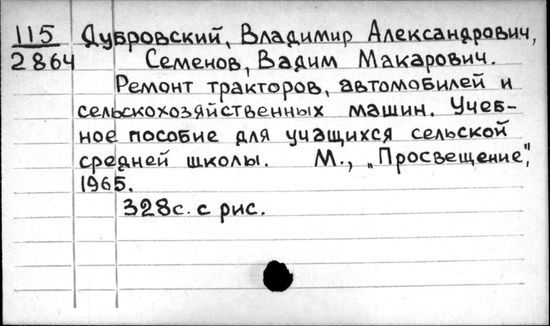 115 Дубровский, Владимир Александрович,
2864 Семенов, Вадим Макарович.
Ремонт тракторов, автомобилей и
сельскохозяйственных машин. Учеб-
ное пособие для учащихся сельской
средней школы. М., „Просвещение",
1965.
328с. с рис.